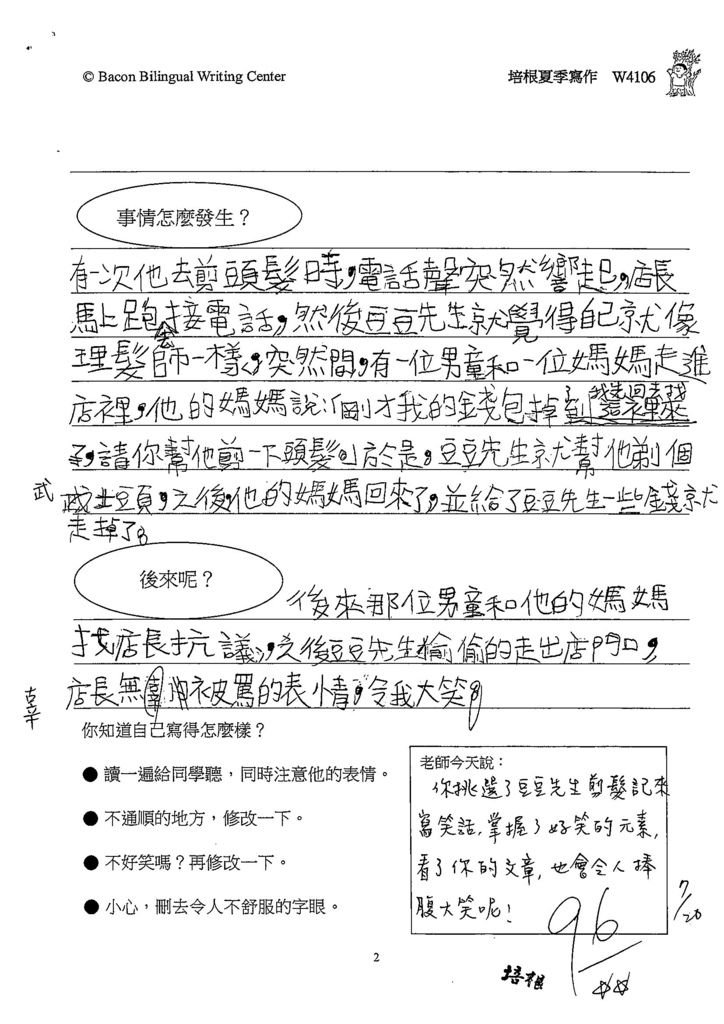 © Bacon Bilingual Writing Center
培根夏季寫作 W4106
事情怎麼發生？
有一次他去剪頭髮時，電話聲突然響起，店長
馬上跑去接電話，然後豆豆先生就覺得自己就像
理髮師一樣，突然間，有一位男童和一位媽媽走進
店裡，他的媽媽說：「剛才我的錢包掉了我先回去找
請你幫他剪一下頭髮」於是，豆豆先生就幫他剃個
武
武士頭，之後他的媽媽回來了，並給了豆豆先生一些錢就
走掉了。
後來呢？
後來那位男童和他的媽媽
找店長抗議，之後豆豆先生偷偷的走出店門口，
店長無辜被罵的表情，令我大笑。
辜
你知道自己寫得怎麼樣？
● 讀一遍給同學聽，同時注意他的表情。
● 不通順的地方，修改一下。
● 不好笑嗎？再修改一下。
● 小心，刪去令人不舒服的字眼。
老師今天說：
你挑選了豆豆先生剪髮記來
寫笑話，掌握了好笑的元素，
看了你的文章，也會令人捧
腹大笑呢！
96
7/20
2
培根